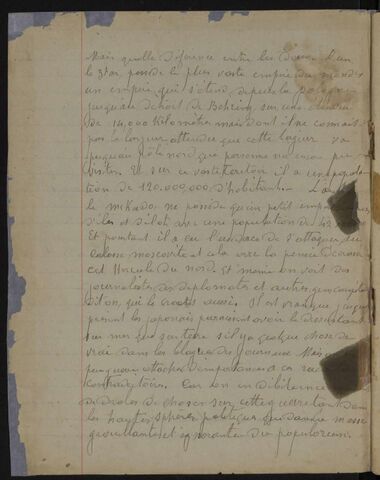 Mais quelle différence entre les deux. L'un
le Star, possède le plus vaste empire du monde
un empire qui s'étend depuis la Pologne
jusqu'au détroit de Behring, sur une
de 14,000 Kilomètres mais dont il ne connait
pas la largeur attendu que cette lageur va
jusqu'au Pôle nord que personne n'a encore pu
visiter. Et sur ce vaste il a une popula
tion de 120.000,000 d'habitants. L'autre
le mikado ne possède qu'un petit empire
d'iles et d'ilots avec une population de 42
Et pourtant il a eu l'audace de s'attaquer au
colosse moscovite et a la vive
cet Hercule du nord. Et même on voit des
journalistes des diplomates et autres gens
qui le croient aussi. Il est vrai que
présent les japonais paraissent avoir le dessus tant
sur mer que sur terre s'il y a quelque chose de
vrai dans les blagues des journaux Mais
jusqu'on attache d'importance à ces
contradictoires. Car l'on en débite
de drôles de choses sur cette guerre tant dans
les hautes sphères politiques que dans la masse
grouillante et ignorante du populo